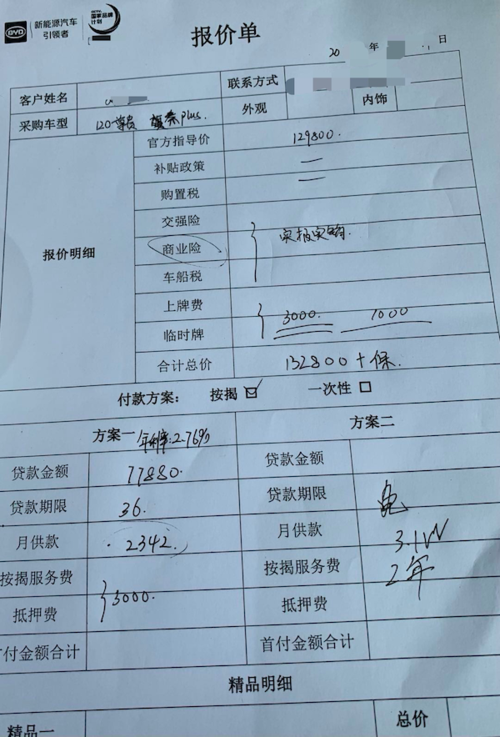 BYD
新能源汽车
引领者
国家品牌
计划
报价单
20 年 日
客户姓名 联系方式
采购车型 120尊贵 Plus. 外观 内饰
报价明细
官方指导价 129800.
补贴政策 —
购置税 —
交强险
商业险 实报实销
车船税
上牌费
临时牌 3000. 1000
合计总价 132800+保.
付款方案: 按揭 ☑ 一次性 □
方案一 年利率:2.76% 方案二
贷款金额 77880. 贷款金额
贷款期限 36. 贷款期限 免
月供款 2342. 月供款 3.1W
按揭服务费 按揭服务费 2年
抵押费 3000. 抵押费
付金额合计 首付金额合计
精品明细
精品一 总价